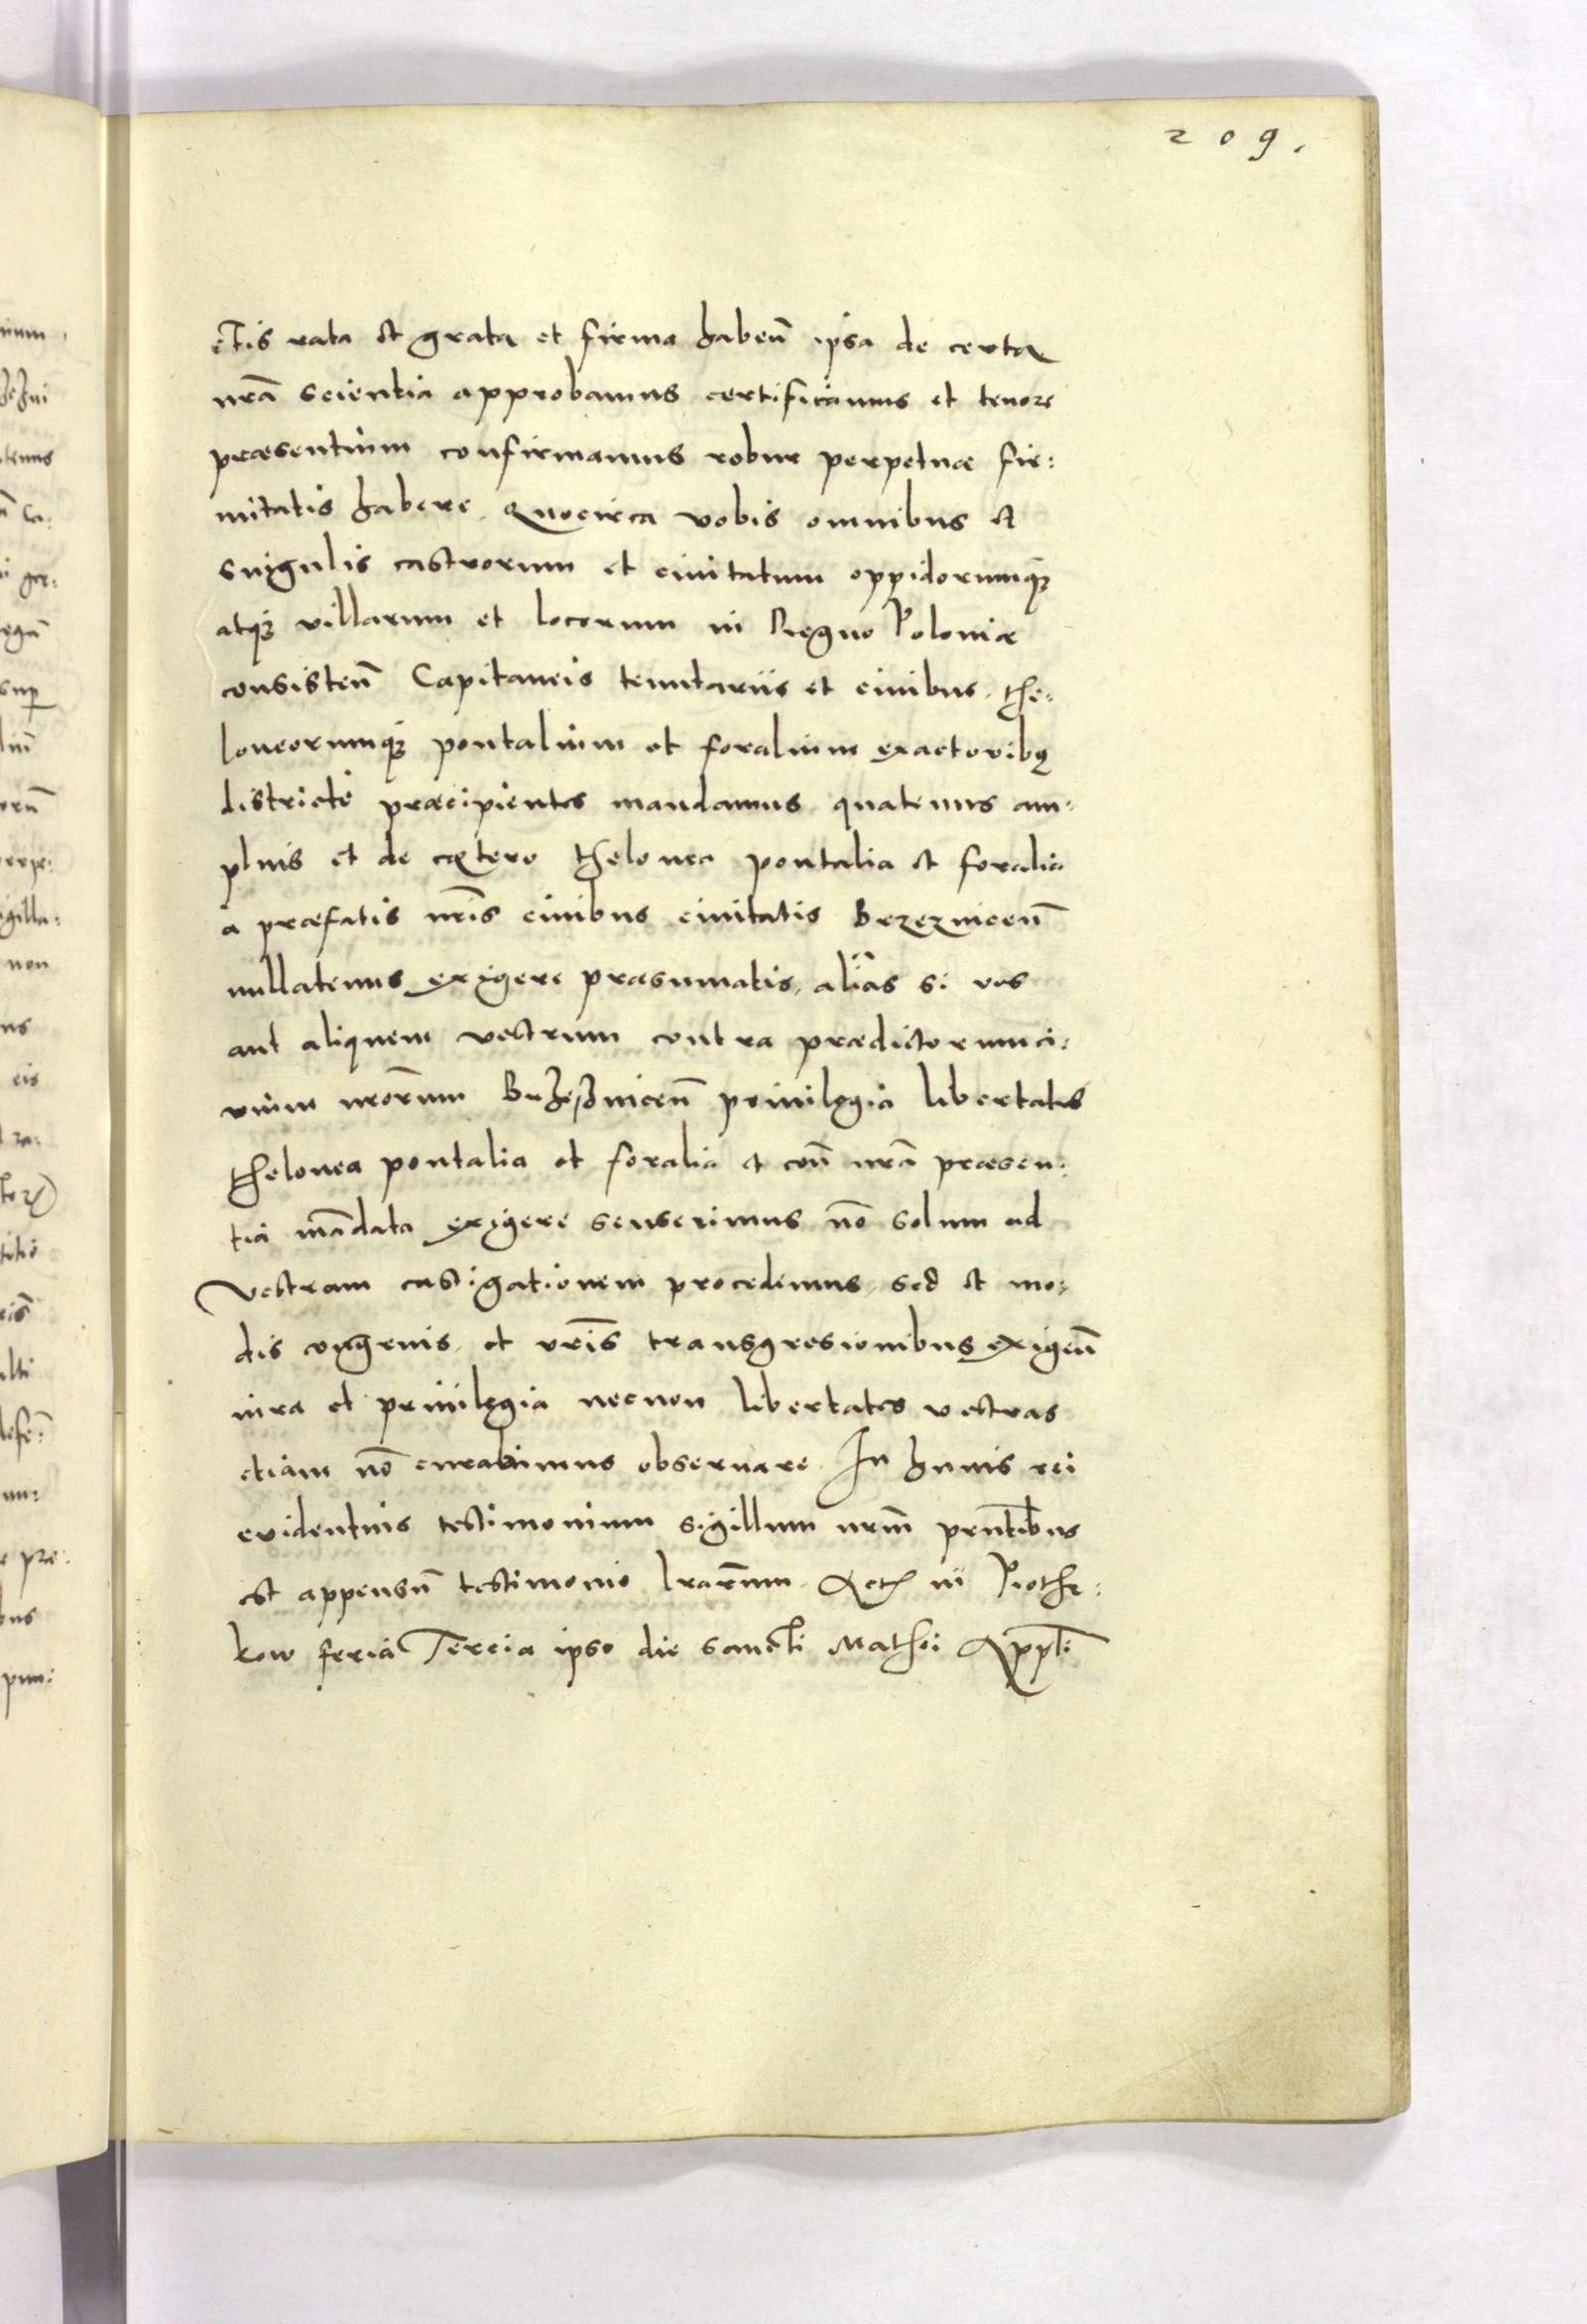 209.
ctis rata et grata et firma habeñ ipsa de certa
nrã scientia approbamus certificamus et tenore
præsentium confirmamus robur perpetuæ fir:
mitatis habere. Quocirca vobis omnibus et
singulis castrorum et ciuitatum oppidorumq;
atq; villarum et locorum in Regno Poloniæ
consisteñ Capitaneis tenutariis et ciuibus. the:
loneorumq; pontalium et foralium exactoribq
districte præcipientes mandamus quatenus am:
plius et de cætero thelonea pontalia et foralia
a præfatis nr̃is ciuibus ciuitatis Brzezniceñ
nullatenus exigere præsumatis, alias si vos
aut aliquem vestrum contra prædictorum ci:
uium nrõrum Brzezniceñ priuilegia libertates
thelonea pontalia et foralia et coñ nrã præsen:
tia mãdata exigere senserimus nõ solum ad
vestram castigationem procedemus, sed et mo:
dis congruis, et vr̃is transgresionibus exigeñ
iura et priuilegia necnon libertates vestras
etiam nõ curabimus obseruare. In huius rei
euidentius testimonium sigillum nrm̃ prñtibus
est appensũ testimonio lrãrum. Act in Piothr:
kow feria Tercia ipso die sancti Mathei Appli